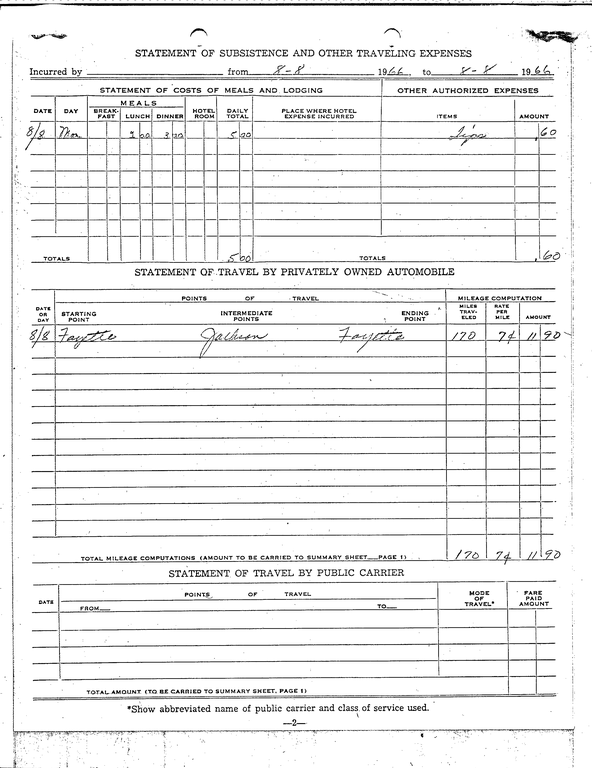 STATEMENT OF SUBSISTENCE AND OTHER TRAVELING EXPENSES
Incurred by from 8-8 1966 to 8-8 1966
STATEMENT OF COSTS OF MEALS AND LODGING OTHER AUTHORIZED EXPENSES
DATE DAY MEALS BREAK-FAST LUNCH DINNER HOTEL ROOM DAILY TOTAL PLACE WHERE HOTEL EXPENSE INCURRED ITEMS AMOUNT
8/8 Mon 3 00 5 00 Tips .60
TOTALS 5 00 TOTALS .60
STATEMENT OF TRAVEL BY PRIVATELY OWNED AUTOMOBILE
POINTS OF TRAVEL MILEAGE COMPUTATION
DATE OR DAY STARTING POINT INTERMEDIATE POINTS ENDING POINT MILES TRAV-ELED RATE PER MILE AMOUNT
8/8 Fayette Jackson Fayette 170 7¢ 11 90
TOTAL MILEAGE COMPUTATIONS (AMOUNT TO BE CARRIED TO SUMMARY SHEET__PAGE 1) 170 7¢ 11 90
STATEMENT OF TRAVEL BY PUBLIC CARRIER
DATE POINTS OF TRAVEL MODE OF TRAVEL* FARE PAID AMOUNT
FROM__ TO__
TOTAL AMOUNT (TO BE CARRIED TO SUMMARY SHEET, PAGE 1)
*Show abbreviated name of public carrier and class of service used.
—2—